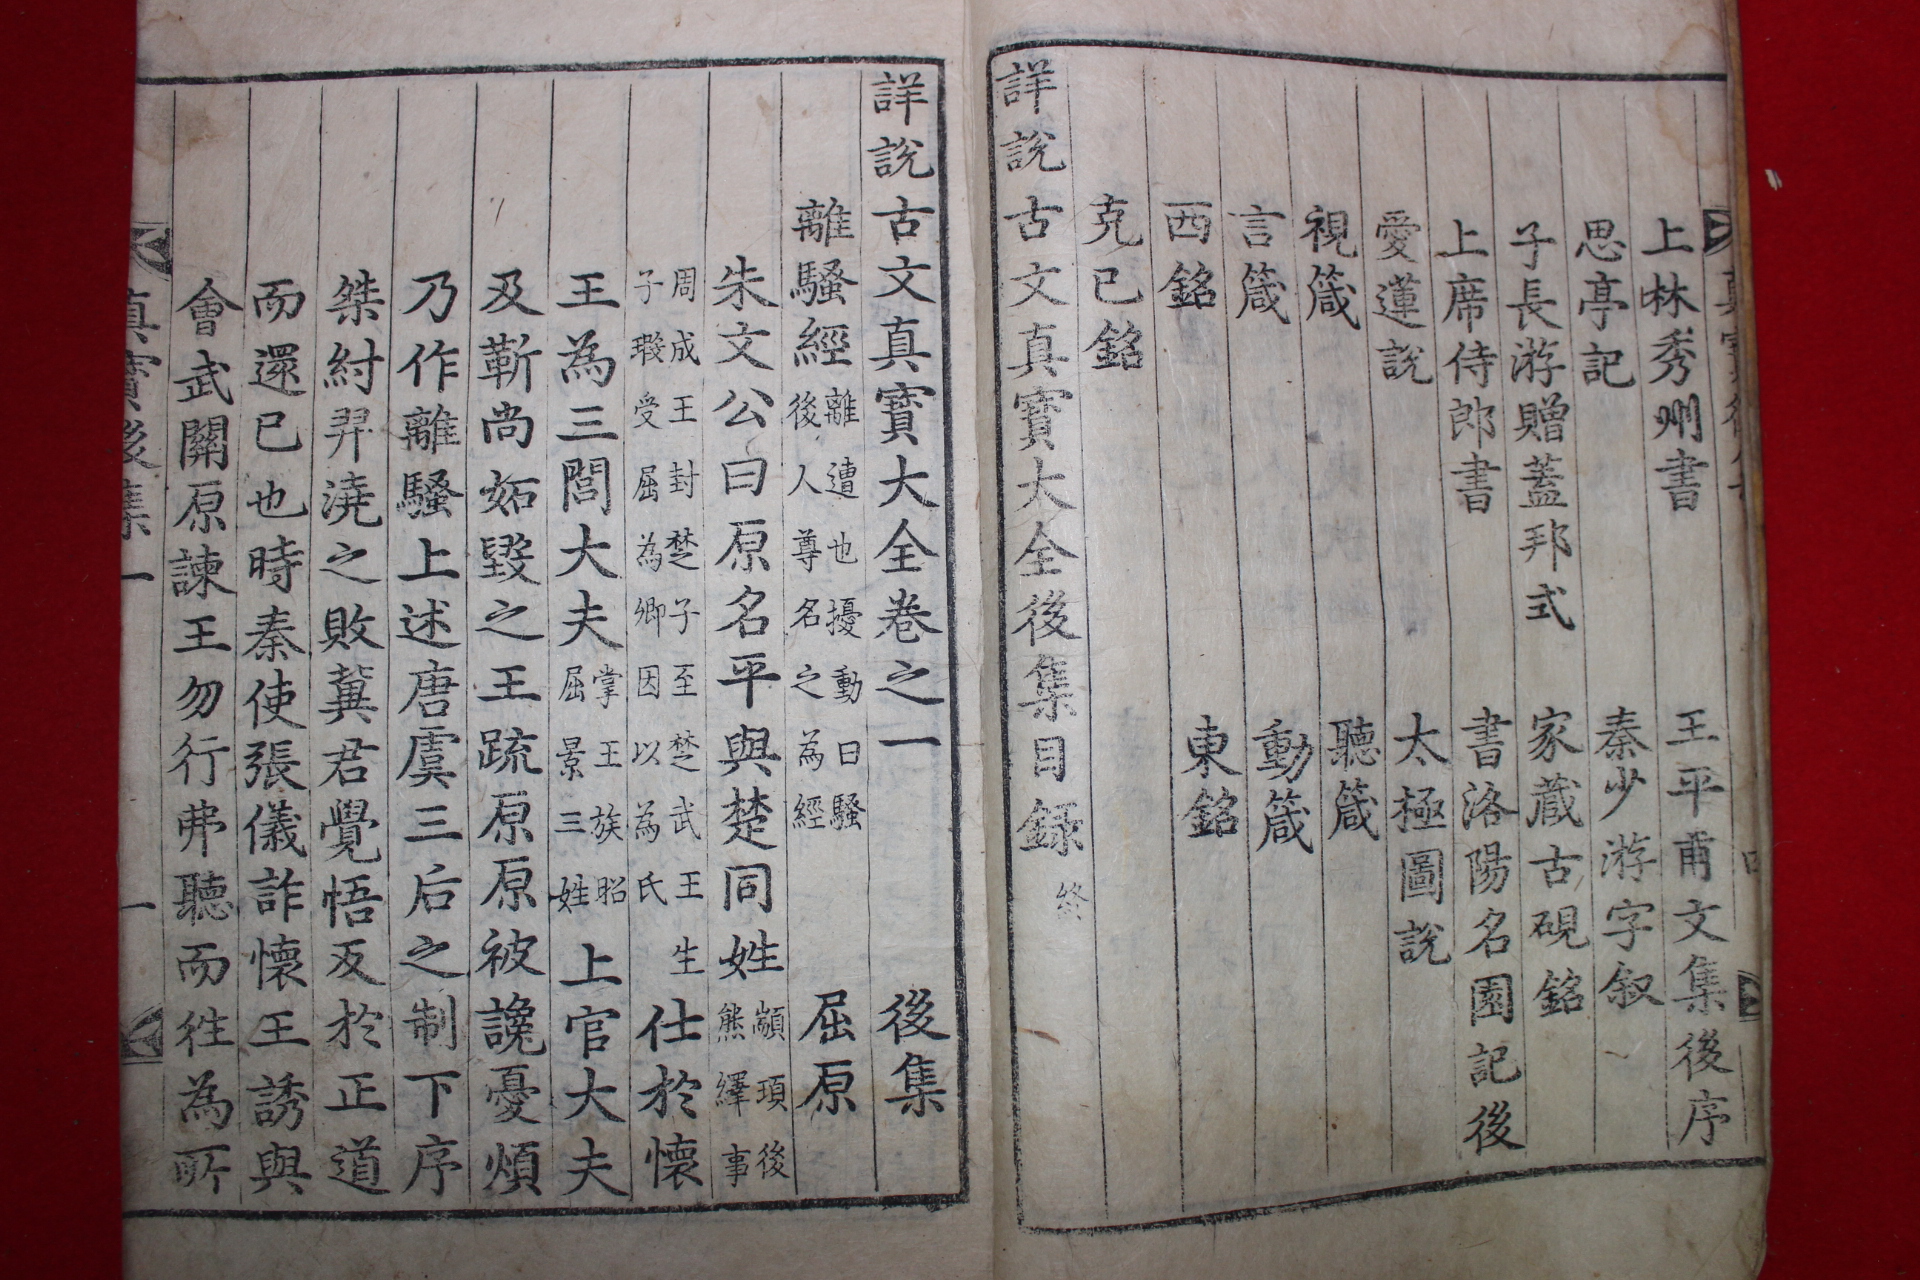 上林秀州書 王平甫文集後序
思亭記 秦少游字叙
子長游贈蓋邦式 家蔵古硯銘
上席侍郎書 書洛陽名園記後
愛蓮說 太極圖說
視箴 聽箴
言箴 動箴
西銘 東銘
克已銘
詳說古文真寶大全後集目録 終
詳說古文真寶大全卷之一 後集
離騷經 離遭也擾動曰騷後人尊名之為經 屈原
朱文公曰原名平與楚同姓 顓頊後熊繹事
周成王封楚子至楚武王生子瑕受屈為卿因以為氏 仕於懷
王為三閭大夫 掌王族昭屈景三姓 上官大夫
及靳尚妬毀之王疏原原被讒憂煩
乃作離騷上述唐虞三后之制下序
桀紂羿澆之敗冀君覺悟反於正道
而還已也時秦使張儀詐懷王誘與
會武關原諫王勿行弗聽而徃為所
真寶後集一 一